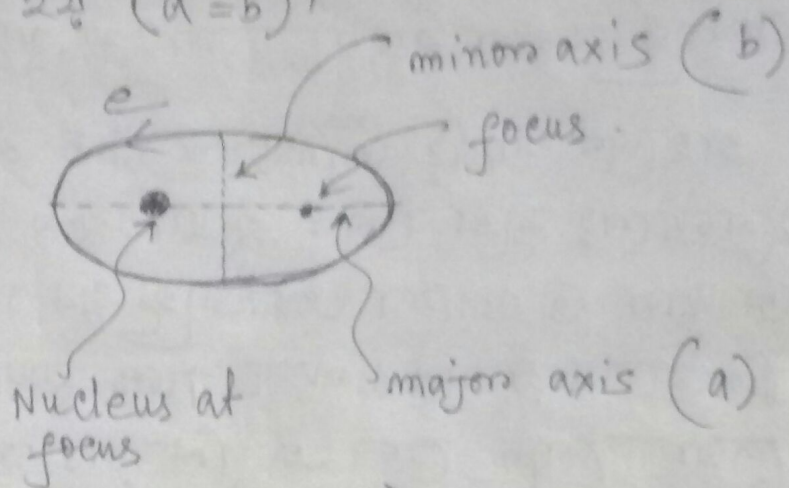 (a = b)
minor axis (b)
e
focus
Nucleus at
focus
major axis (a)